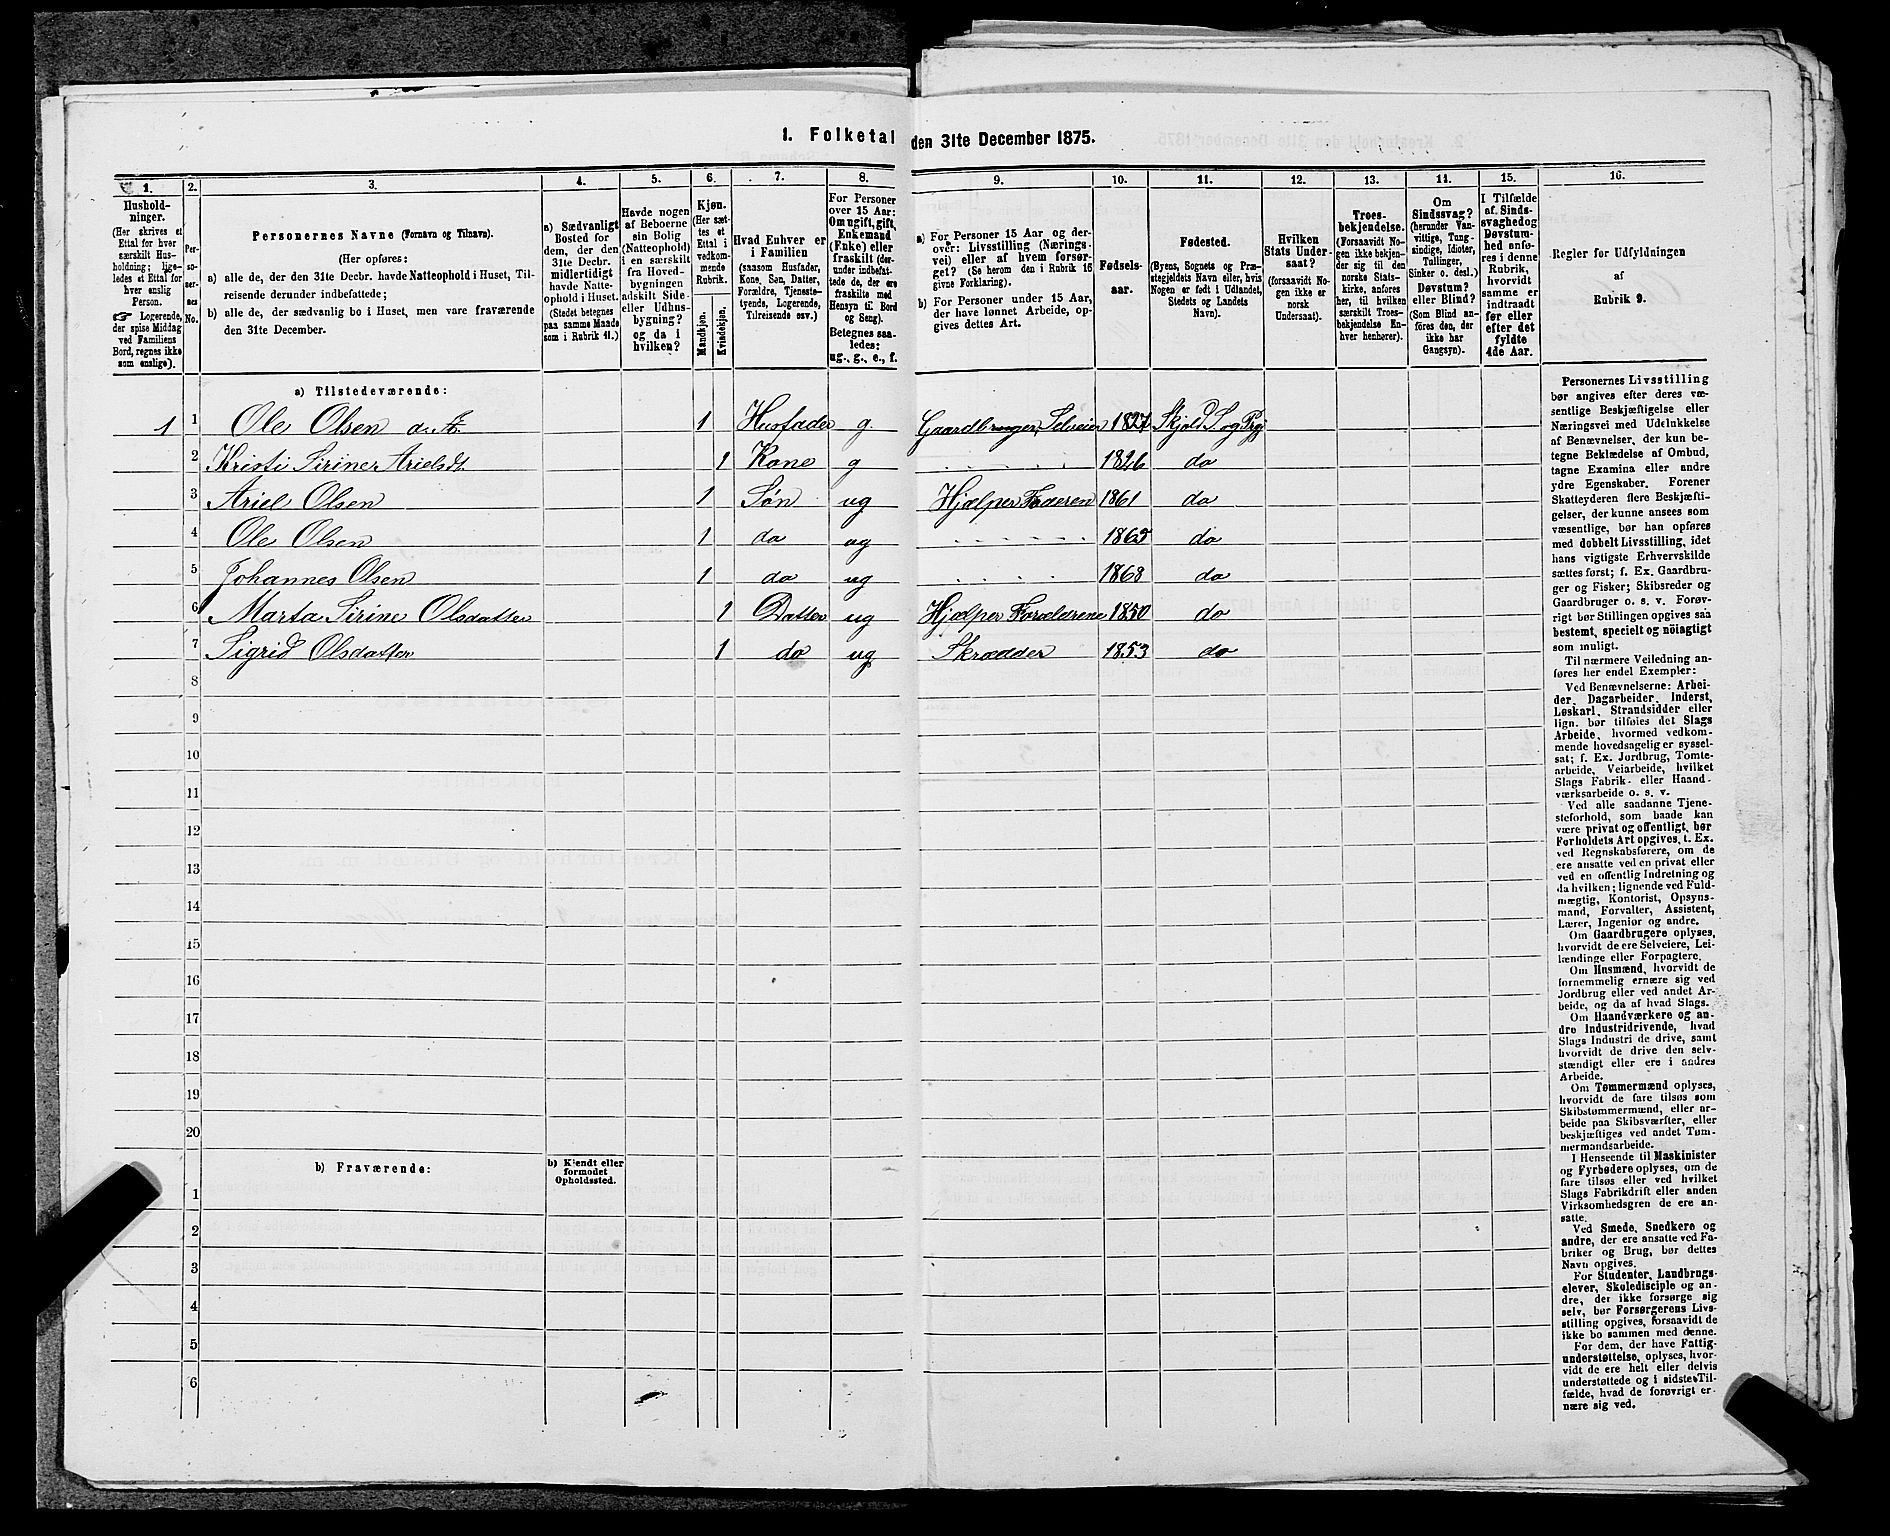 1. Folketal den 31te December 1875.
1. 2. 3. 4. 5. 6. 7. 8. 9. 10. 11. 12. 13. 14. 15. 16.
Hushold-
ninger.
(Her skrives et
Ettal for hver
særskilt Hus-
holdning; lige-
ledes et Ettal for
hver enslig
Person.
☞ Logerende,
der spise Middag
ved Familiens
Bord, regnes ikke
som enslige).
Per-
so-
ner-
nes
No.
Personernes Navne (Fornavn og Tilnavn).
(Her opføres:
a) alle de, der den 31te Decbr. havde Natteophold i Huset, Til-
reisende derunder indbefattede;
b) alle de, der sædvanlig bo i Huset, men vare fraværende
den 31te December.
a) Sædvanligt
Bosted for
dem, der den
31te Decbr.
midlertidigt
havde Natte-
ophold i Huset.
(Stedet betegnes
paa samme Maade
som i Rubrik 11.)
Havde nogen
af Beboerne
sin Bolig
(Natteophold)
i en særskilt
fra Hoved-
bygningen
adskilt Side-
eller Udhus-
bygning?
og da i
hvilken?
Kjøn.
(Her sæt-
tes et
Ettal i
vedkom-
mende
Rubrik.
Mandkjøn.
Kvindekjøn.
Hvad Enhver er
i Familien
(saasom Husfader,
Kone, Søn, Datter,
Forældre, Tjeneste-
tyende, Logerende,
Tilreisende osv.)
For Personer
over 15 Aar:
Om ugift, gift,
Enkemand
(Enke) eller
fraskilt (der-
under indbefat-
tede de, der ere
fraskilte med
Hensyn til Bord
og Seng).
Betegnes saa-
ledes:
ug., g., e., f.
a) For Personer 15 Aar og der-
over: Livsstilling (Nærings-
vei) eller af hvem forsør-
get? (Se herom den i Rubrik 16
givne Forklaring).
b) For Personer under 15 Aar,
der have lønnet Arbeide, op-
gives dettes Art.
Fødsels-
aar.
Fødested.
(Byens, Sognets og Præ-
stegjeldets Navn eller, hvis
Nogen er født i Udlandet,
Stedets og Landets
Navn).
Hvilken
Stats Under-
saat?
(forsaavidt No-
gen ikke er
norsk
Undersaat).
Troes-
bekjendelse.
(Forsaavidt No-
gen ikke bekjen-
der sig til den
norske Stats-
kirke, anføres
her, til hvilken
særskilt Troes-
bekjendelse En-
hver henhører).
Om
Sindssvag?
(herunder Van-
vittige, Tung-
sindige, Idioter,
Tullinger,
Sinker o. desl.)
Døvstum?
eller Blind?
(Som Blind an-
føres den, der
ikke har
Gangsyn).
I Tilfælde
af Sinds-
svaghed og
Døvstum-
hed anfø-
res i denne
Rubrik,
hvorvidt
samme er
indtraadt
før eller
efter det
fyldte
4de Aar.
Regler for Udfyldningen
af
Rubrik 9.
a) Tilstedeværende:
1 1 Ole Olsen d. Æ. 1 Husfader g. Gaardbruger, Selveier 1827 Skjold S og Prg
2 Kristi Sirine Arielsdt. 1 Kone g 1826 do
3 Ariel Olsen 1 Søn ug Hjælper Faderen 1861 do
4 Ole Olsen 1 do ug 1865 do
5 Johannes Olsen 1 do ug 1868 do
6 Marta Sirine Olsdatter 1 Datter ug Hjælper Forældrene 1850 do
7 Sigrid Olsdatter 1 do ug Skrædder 1853 do
8
9
10
11
12
13
14
15
16
17
18
19
20
b) Fraværende:
b) Kjendt eller
formodet
Opholdssted.
1
2
3
4
5
6
Personernes Livsstilling
bør angives efter deres væ-
sentlige Beskjæftigelse eller
Næringsvei med Udelukkelse
af Benævnelser, der kun be-
tegne Beklædelse af Ombud,
tagne Examina eller andre
ydre Egenskaber. Forener
Skatteyderen flere Beskjæfti-
gelser, der kunne ansees som
væsentlige, bør han opføres
med dobbelt Livsstilling, idet
hans vigtigste Erhvervskilde
sættes først; f. Ex. Gaardbru-
ger og Fisker; Skibsreder og
Gaardbruger o. s. v. Forøv-
rigt bør Stillingen opgives saa
bestemt, specielt og nöiagtigt
som muligt.
Til nærmere Veiledning an-
føres her endel Exempler:
Ved Benævnelserne: Arbei-
der, Dagarbeider, Inderst,
Løskarl, Strandsidder eller
lign. bør tilføies det Slags
Arbeide, hvormed vedkom-
mende hovedsagelig er syssel-
sat; f. Ex. Jordbrug, Tomte-
arbeide, Veiarbeide, hvilket
Slags Fabrik- eller Haand-
værksarbeide o. s. v.
Ved alle saadanne Tjene-
steforhold, som baade kan
være privat og offentligt, bør
Forholdets Art opgives, t. Ex.
ved Regnskabsførere, om de
ere ansatte ved en privat eller
ved en offentlig Indretning og
da hvilken; lignende ved Fuld-
mægtig, Kontorist, Opsyns-
mand, Forvalter, Assistent,
Lærer, Ingeniør og andre.
Om Gaardbrugere oplyses,
hvorvidt de ere Selveiere, Lei-
lændinge eller Forpagtere.
Om Husmænd, hvorvidt de
fornemmelig ernære sig ved
Jordbrug eller ved andet Ar-
beide, og da af hvad Slags.
Om Haandværkere og an-
dre Industridrivende, hvad
Slags Industri de drive, samt
hvorvidt de drive den selv-
stændigt eller ere i andres
Arbeide.
Om Tømmermænd oplyses,
hvorvidt de fare tilsøs som
Skibstømmermænd, eller ar-
beide paa Skibsværfter, eller
beskjæftiges ved andet Tøm-
mermandsarbeide.
I Henseende til Maskinister
og Fyrbødere oplyses, om de
fare tilsøs eller ved hvilket
Slags Fabrikdrift eller anden
Virksomhedsgren de ere an-
satte.
Ved Smede, Snedkere og
andre, der ere ansatte ved Fa-
briker og Brug, bør dettes
Navn opgives.
For Studenter, Landbrugs-
elever, Skoledisciple og an-
dre, der ikke forsørge sig
selv, bør Forsørgerens Livs-
stilling opgives, forsaavidt de
ikke bo sammen med denne.
For dem, der have Fattig-
understøttelse, oplyses, hvor-
vidt de ere helt eller delvis
understøttede og i sidste Til-
fælde, hvad de forøvrigt er-
nære sig ved.